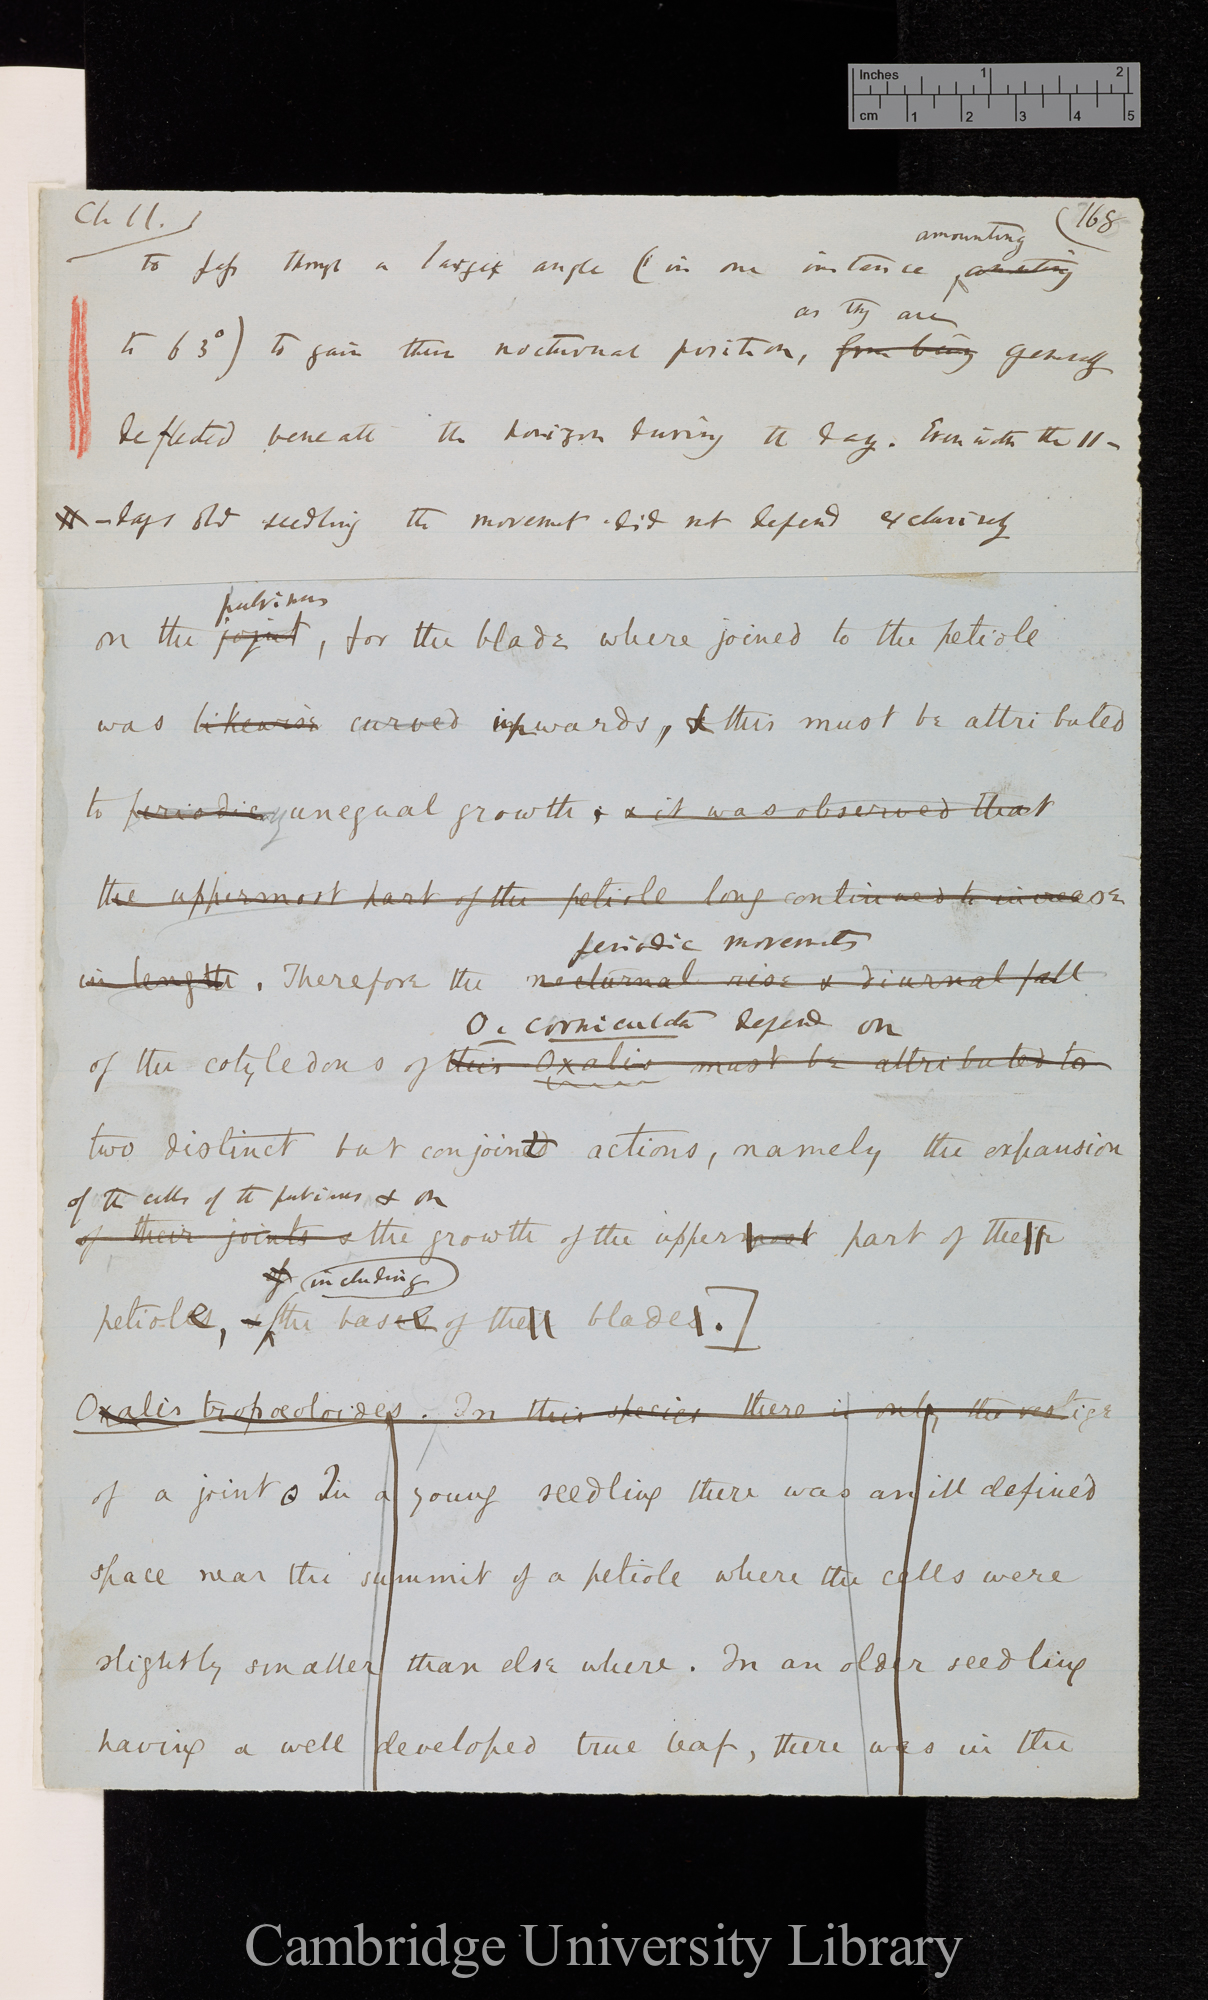 Inches 1 2
cm 1 2 3 4 5
Ch II.
(168
amounting
to pass through a large angle (in one instance, amounting
as they are
to 63°) to gain their nocturnal position, from being generally
deflected beneath the horizon during the day. Even with the 11-
-days old seedling the movement did not depend exclusively
pulvinus
on the joint, for the blade where joined to the petiole
was likewise curved upwards, & this must be attributed
to periodic unequal growth; & it was observed that
the uppermost part of the petiole long continued to increase
in length. Therefore the nocturnal rise & diurnal fall
periodic movements
O. corniculata depend on
of the cotyledons of this Oxalis must be attributed to
two distinct but conjoint actions, namely the expansion
of the cells of the pulvinus & on
of their joints & the growth of the uppermost part of their
of including
petioles, & the bases of the blades.]
Oxalis tropæoloides. In this species there is only the vestige
of a joint. In a young seedling there was an ill defined
space near the summit of a petiole where the cells were
slightly smaller than else where. In an older seedling
having a well developed true leaf, there was in the
Cambridge University Library